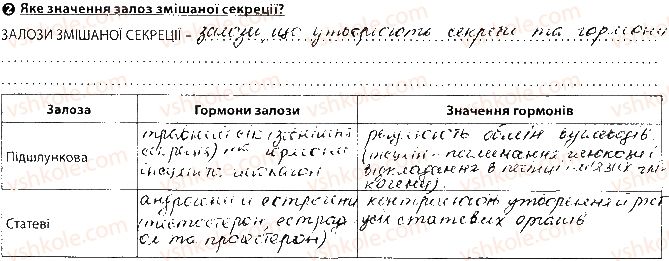 2 Яке значення залоз змішаної секреції?
ЗАЛОЗИ ЗМІШАНОЇ СЕКРЕЦІЇ – залози, що утворюють секрети та гормони
Залоза Гормони залози Значення гормонів
Підшлункова
травний сік (зовнішня
секреція) та гормони
інсулін та глюкагон
регулюють обмін вуглеводів.
(інсулін - поглинання глюкози і
відкладання в печінці і м'язах глі
когену).
Статеві
андрогени й естрогени
(тестостерон, естрад
ол та прогестерон)
контролюють утворення й
статевих органів
vshkole.com